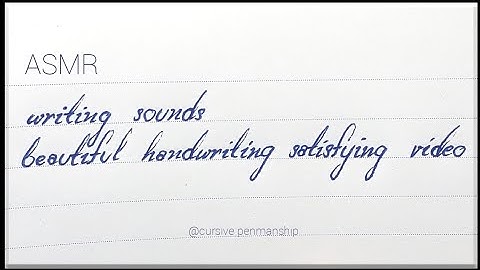 ASMR
writing sounds
beautiful handwriting satisfying video
@cursive penmanship